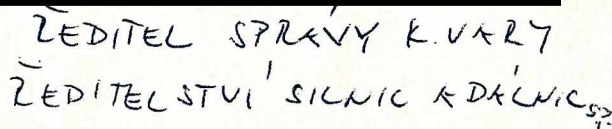 ŘEDITEL SPRÁVY K.VARY
ŘEDITELSTVÍ SILNIC A DÁLNIC